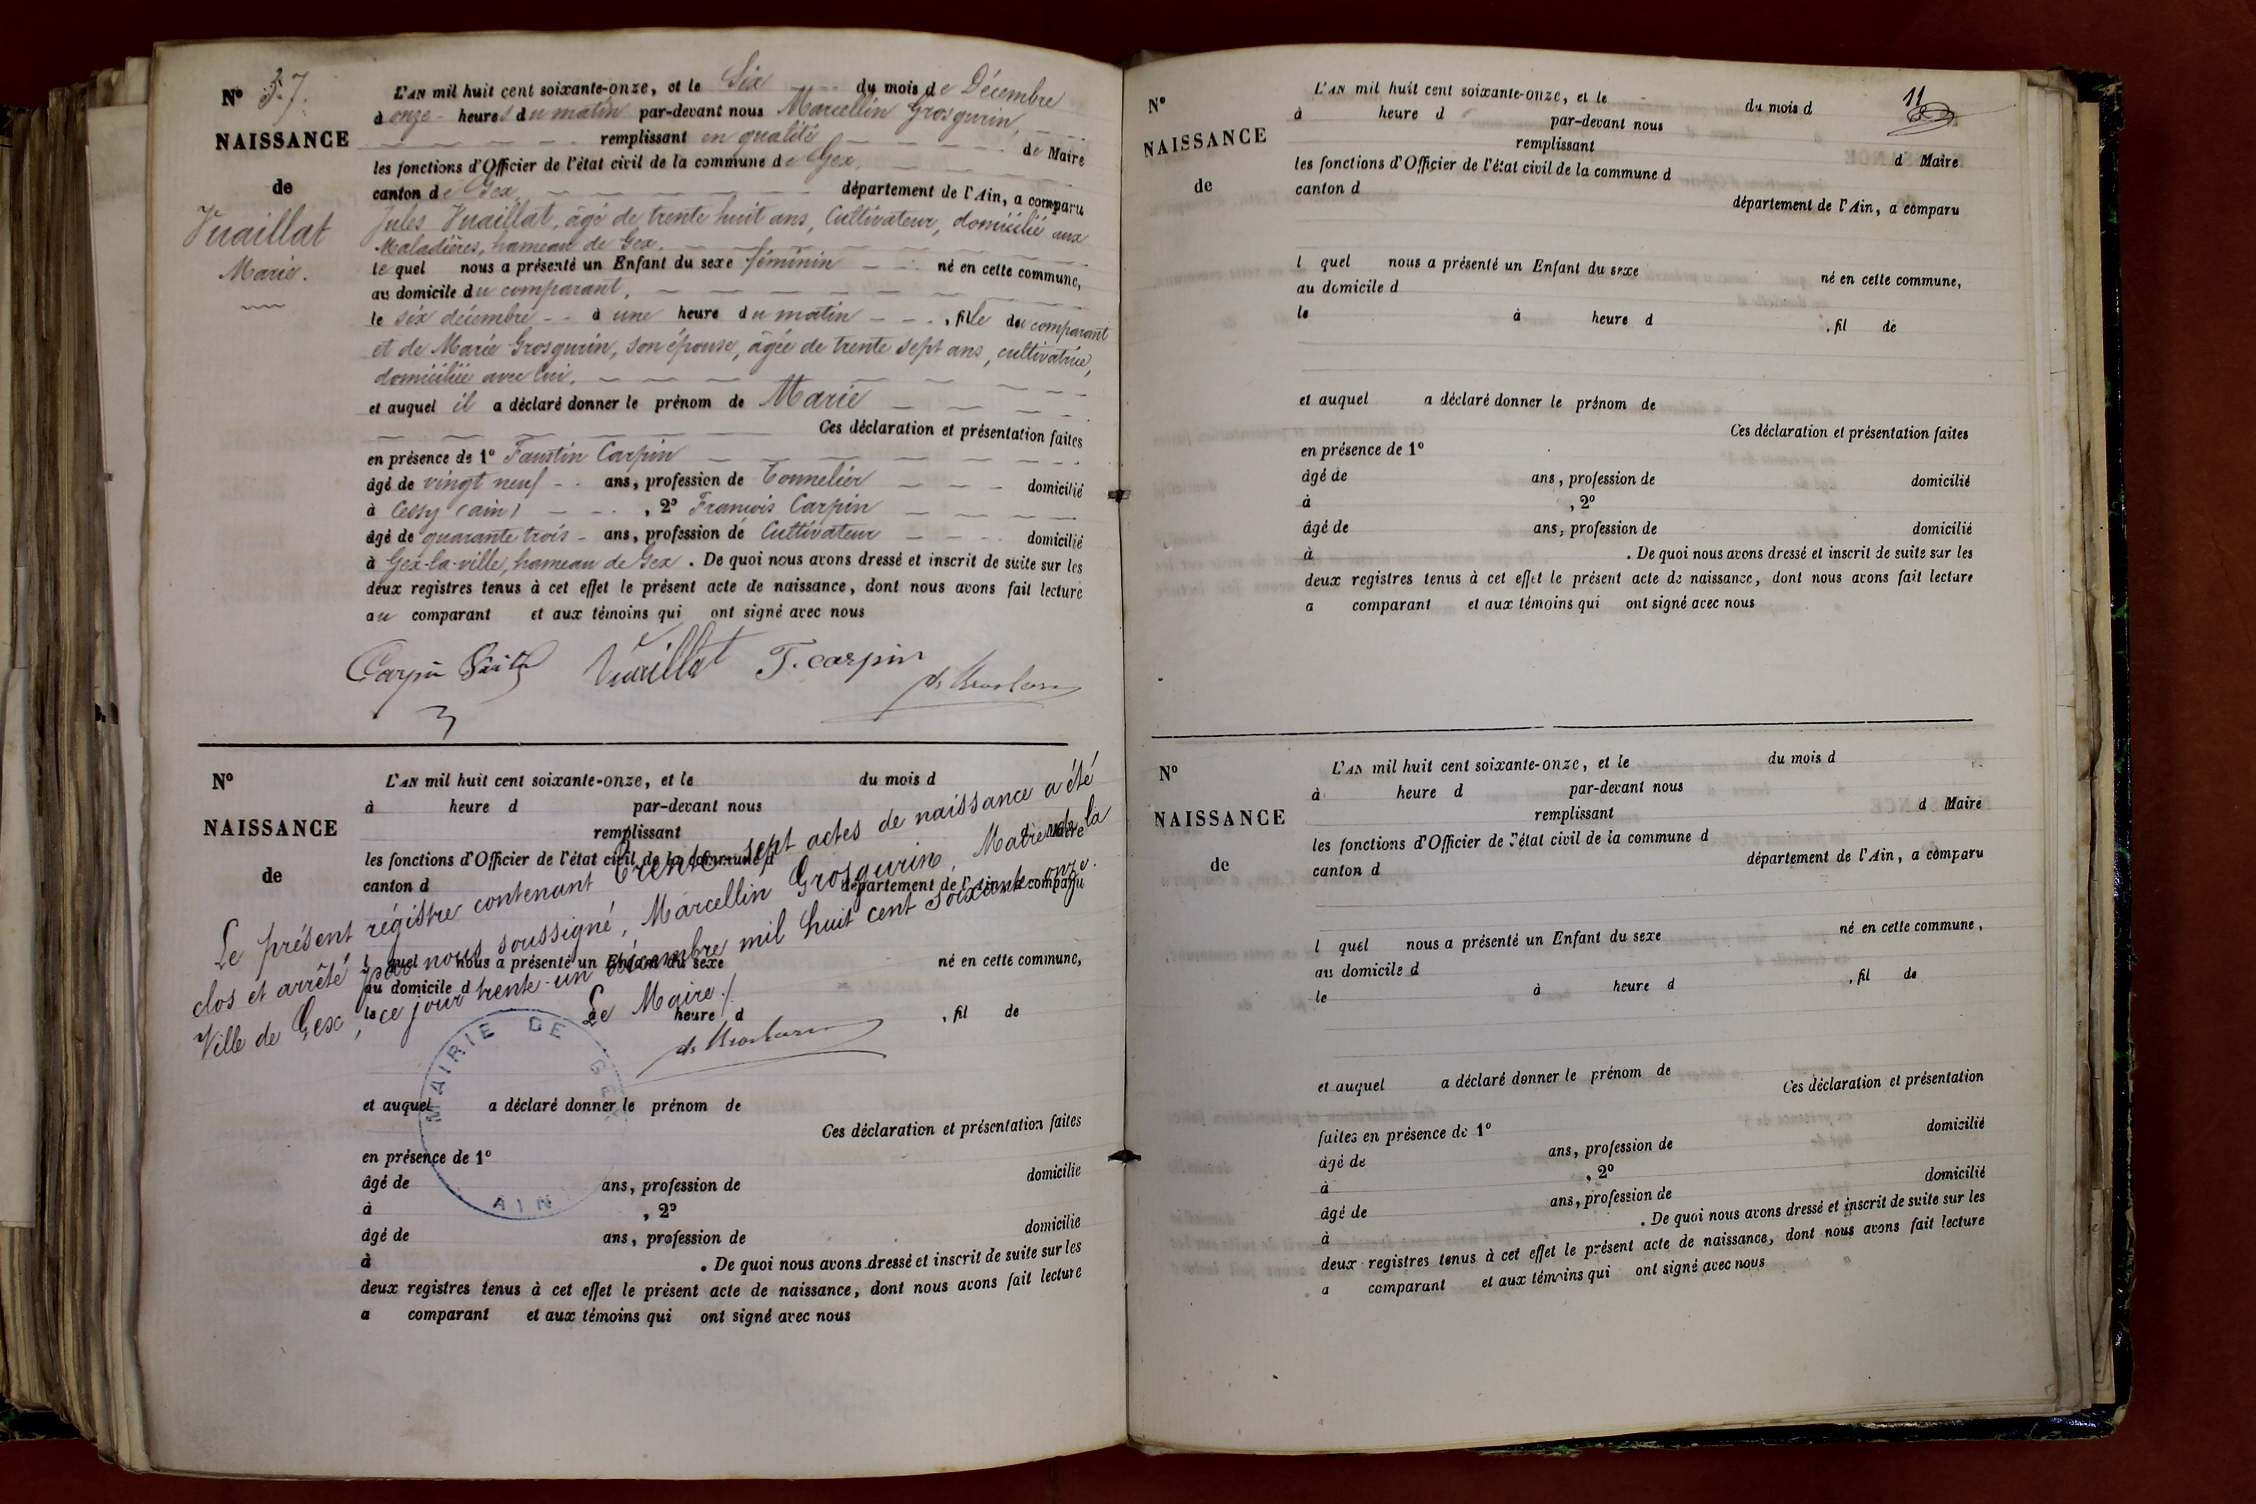 N° 37.
NAISSANCE
de
Vuaillat
Marie.
L'AN mil huit cent soixante-onze, et le Six du mois de Décembre
à onze heures du matin par-devant nous Marcellin Grosgurin,
remplissant en qualité de Maire
les fonctions d'Officier de l'état civil de la commune de Gex,
canton de Gex, département de l'Ain, a comparu
Jules Vuaillat, âgé de trente huit ans, Cultivateur, domicilié aux
Maladières, hameau de Gex.
lequel nous a présenté un Enfant du sexe féminin né en cette commune,
au domicile du comparant,
le six décembre à une heure du matin, fille du comparant
et de Marie Grosgurin, son épouse, âgée de trente sept ans, cultivatrice,
domiciliée avec lui.
et auquel il a déclaré donner le prénom de Marie
Ces déclaration et présentation faites
en présence de 1° Faustin Carpin
âgé de vingt neuf ans, profession de Tonnelier domicilié
à Cessy (ain), 2° François Carpin
âgé de quarante trois ans, profession de Cultivateur domicilié
à Gex-la-ville, hameau de Gex. De quoi nous avons dressé et inscrit de suite sur les
deux registres tenus à cet effet le présent acte de naissance, dont nous avons fait lecture
au comparant et aux témoins qui ont signé avec nous
Carpin Vuaillat F. carpin
N°
NAISSANCE
de
L'AN mil huit cent soixante-onze, et le du mois d
à heure d par-devant nous
remplissant d Maire
les fonctions d'Officier de l'état civil de la commune d
canton d département de l'Ain, a comparu
Le présent régistre contenant Trente-sept actes de naissance a été
clos et arrêté par nous soussigné, Marcellin Grosgurin, Maire de la
Ville de Gex, ce jour trente-un décembre mil huit cent soixante-onze.
Le Maire
l quel nous a présenté un Enfant du sexe né en cette commune,
au domicile d
le heure d , fil de
MAIRIE DE GEX
AIN
et auquel a déclaré donner le prénom de
Ces déclaration et présentation faites
en présence de 1°
âgé de ans, profession de domicilié
à , 2°
âgé de ans, profession de domicilié
à . De quoi nous avons dressé et inscrit de suite sur les
deux registres tenus à cet effet le présent acte de naissance, dont nous avons fait lecture
a comparant et aux témoins qui ont signé avec nous
11
N°
NAISSANCE
de
L'AN mil huit cent soixante-onze, et le du mois d
à heure d par-devant nous
remplissant d Maire
les fonctions d'Officier de l'état civil de la commune d
canton d département de l'Ain, a comparu
l quel nous a présenté un Enfant du sexe né en cette commune,
au domicile d
le à heure d , fil de
et auquel a déclaré donner le prénom de
Ces déclaration et présentation faites
en présence de 1°
âgé de ans, profession de domicilié
à , 2°
âgé de ans, profession de domicilié
à . De quoi nous avons dressé et inscrit de suite sur les
deux registres tenus à cet effet le présent acte de naissance, dont nous avons fait lecture
a comparant et aux témoins qui ont signé avec nous
N°
NAISSANCE
de
L'AN mil huit cent soixante-onze, et le du mois d
à heure d par-devant nous
remplissant d Maire
les fonctions d'Officier de l'état civil de la commune d
canton d département de l'Ain, a comparu
l quel nous a présenté un Enfant du sexe né en cette commune,
au domicile d
le à heure d , fil de
et auquel a déclaré donner le prénom de
Ces déclaration et présentation
faites en présence de 1° domicilié
âgé de ans, profession de
à , 2° domicilié
âgé de ans, profession de
à . De quoi nous avons dressé et inscrit de suite sur les
deux registres tenus à cet effet le présent acte de naissance, dont nous avons fait lecture
a comparant et aux témoins qui ont signé avec nous